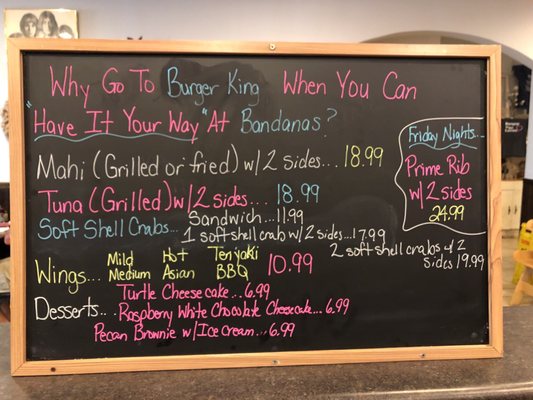 Why Go To Burger King When You Can
"Have It Your Way" At Bandanas?
Mahi (Grilled or fried) w/ 2 sides... 18.99
Tuna (Grilled) w/ 2 sides.... 18.99
Soft Shell Crabs... Sandwich....11.99
1 soft shell crab w/ 2 sides...17.99
2 soft shell crabs w/ 2
sides 19.99
Friday Nights...
Prime Rib
w/ 2 sides
24.99
Wings... Mild Hot Teriyaki 10.99
Medium Asian BBQ
Desserts... Turtle Cheesecake...6.99
Raspberry White Chocolate Cheesecake...6.99
Pecan Brownie w/ Ice Cream...6.99